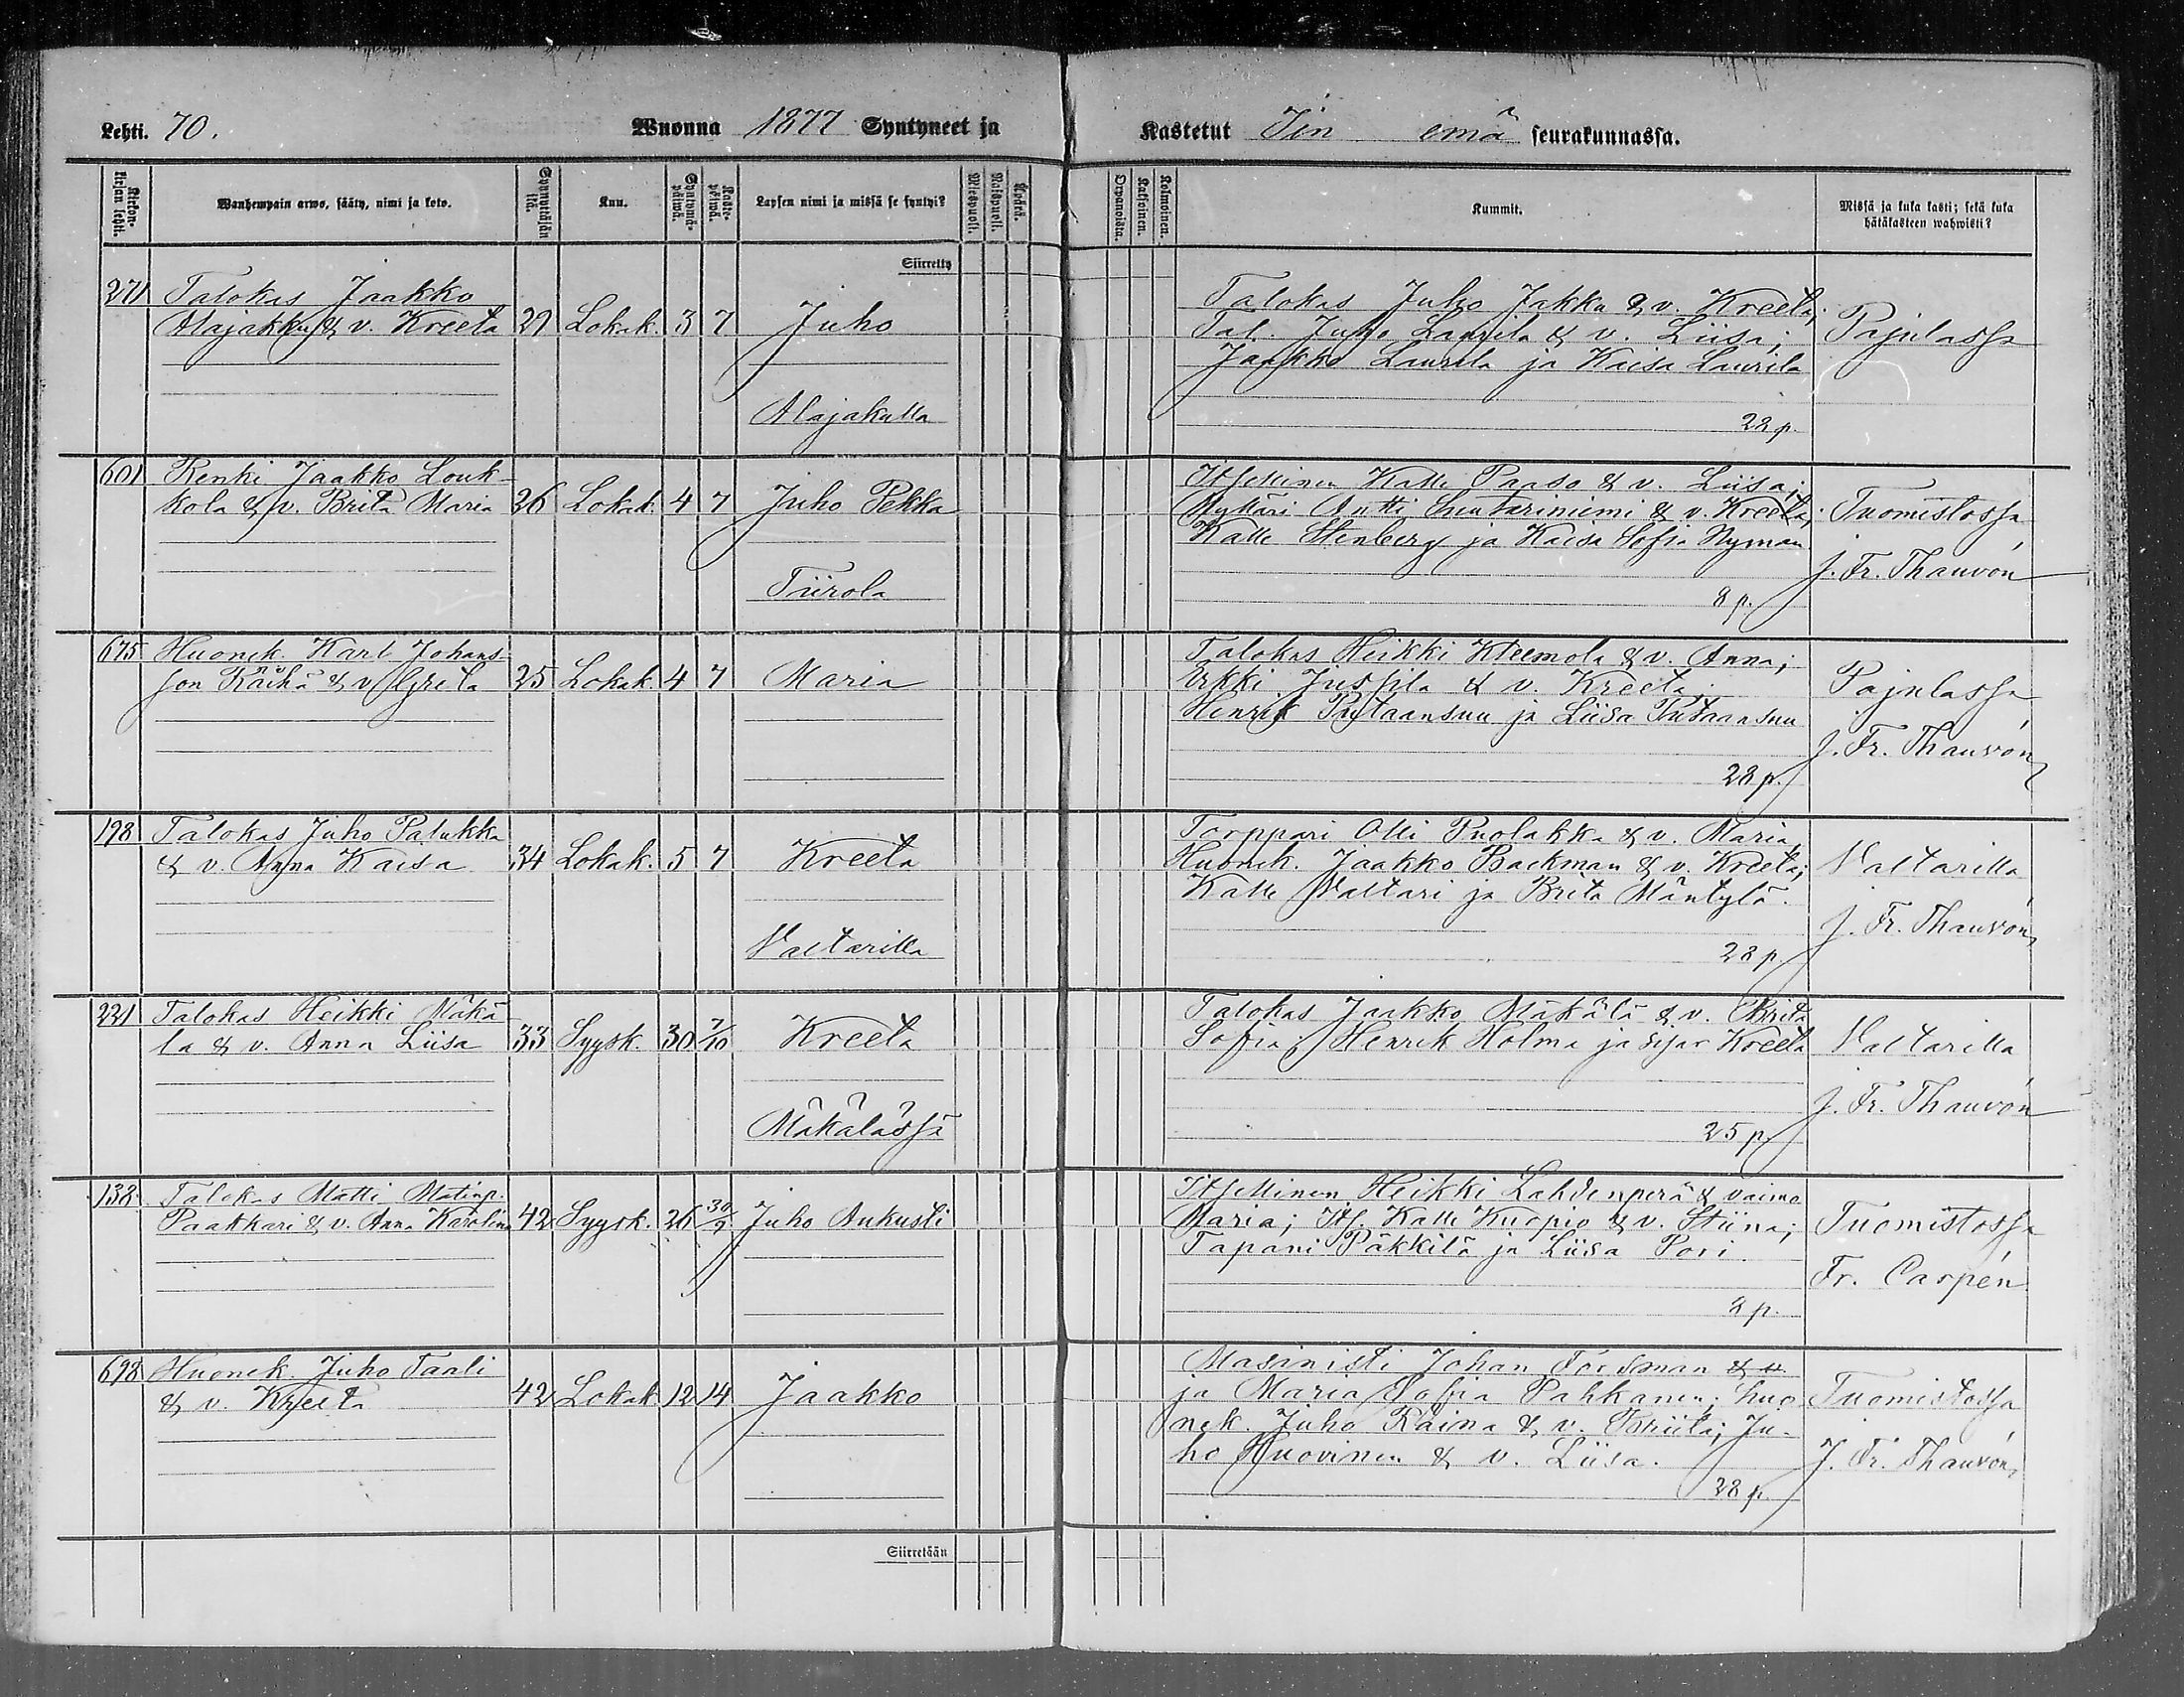 Lehti. 70.
Wuonna 1877 Syntyneet ja
Kastetut Iin emä seurakunnassa.
Kirkon-kirjan lehti.
Wanhempain arwo, sääty, nimi ja koto.
Synnyttäjän ikä.
Kuu.
Syntymä-päiwä.
Kaste-päiwä.
Lapsen nimi ja missä se syntyi?
Miespuoli.
Naispuoli.
Äpärä.
Orpanoista.
Kaksoinen.
Kolmoinen.
Kummit.
Missä ja kuka kasti; sekä kuka hätäkasteen wahwisti?
Siirretty
271 Talokas Jaakko
Alajakku & v. Kreeta 29 Lokak. 3 7 Juho
Alajakulla
Talokas Juho Jakku & v. Kreeta;
Tal. Juho Laurila & v. Liisa;
Jaakko Laurila ja Kaisa Laurila
28 p.
Pajulassa
601 Renki Jaakko Louk-
kola & v. Brita Maria 26 Lokak. 4 7 Juho Pekka
Tiirola
Itsellinen Kalle Paaso & v. Liisa;
Mylläri Antti Suutariniemi & v. Kreeta;
Kalle Stenberg ja Kaisa Sofia Nyman
8 p.
Tuomistossa
J. Fr. Thauvón
675 Huonek. Karl Johans-
son Räihä & v. Greta 25 Lokak. 4 7 Maria
Talokas Heikki Kleemola & v. Anna;
Erkki Jussila & v. Kreeta;
Henrik Putaansuu ja Liisa Putaansuu
28 p.
Pajulassa
J. Fr. Thauvón
198 Talokas Juho Palukka
& v. Anna Kaisa 34 Lokak. 5 7 Kreeta
Valtarilla
Torppari Olli Puolakka & v. Maria,
Huonek. Jaakko Backman & v. Kreeta;
Kalle Valtari ja Brita Mäntylä.
28 p.
Valtarilla
J. Fr. Thauvón
221 Talokas Heikki Mäkä-
lä & v. Anna Liisa 33 Syysk. 30 7/10 Kreeta
Mäkälässä
Talokas Jaakko Mäkälä & v. Brita
Sofia; Henrik Holma ja sisar Kreeta
25 p.
Valtarilla
J. Fr. Thauvón
138 Talokas Matti Matinp.
Paakkari & v. Anna Karolina 42 Syysk. 26 30/9 Juho Aukusti
Itsellinen Heikki Lahdenperä & vaimo
Maria; Its. Kalle Kuopio & v. Stiina;
Tapani Päkkilä ja Liisa Pori
8 p.
Tuomistossa
Fr. Carpén
698 Huonek. Juho Taali
& v. Kreeta 42 Lokak. 12 14 Jaakko
Masinisti Johan Fordsman & v.
ja Maria Sofia Pahkanen; huo
nek. Juho Raina & v. Briita; Ju-
ho Huovinen & v. Liisa.
28 p.
Tuomistossa
J. Fr. Thauvón
Siirretään